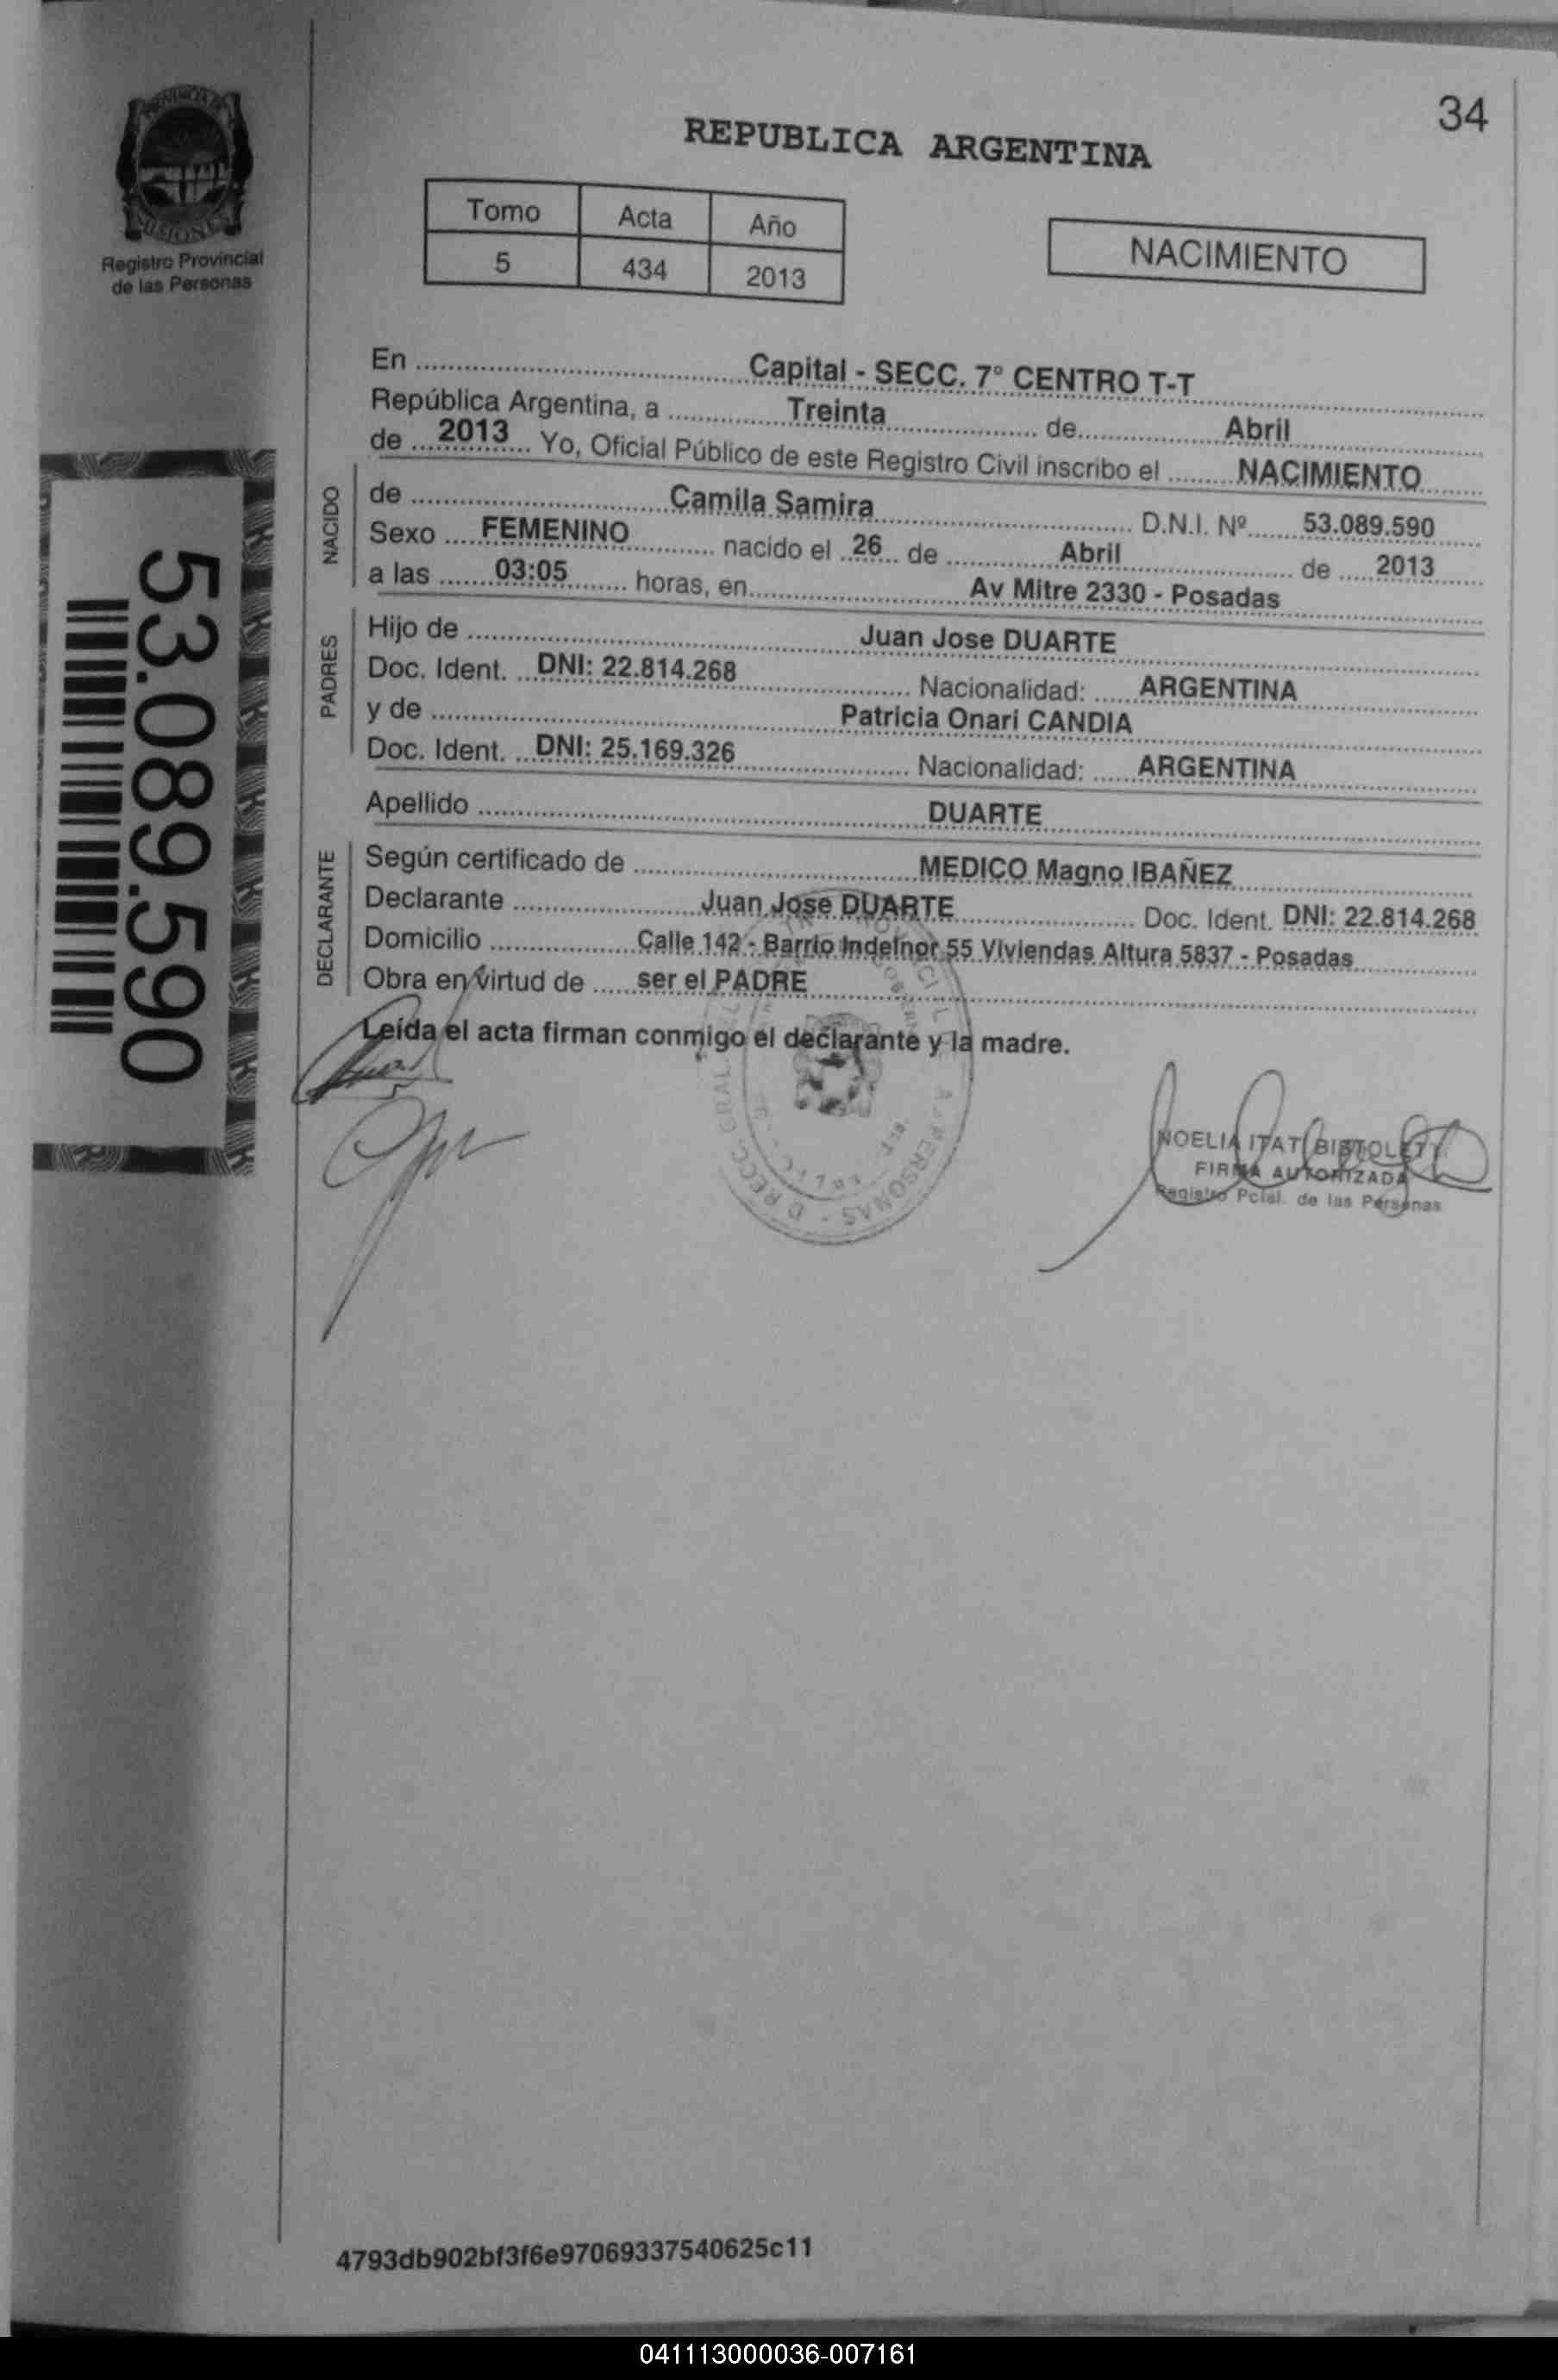 34
REPUBLICA ARGENTINA
PROVINCIA DE
MISIONES
Registro Provincial
de las Personas
Tomo Acta Año
5 434 2013
NACIMIENTO
En Capital - SECC. 7° CENTRO T-T
República Argentina, a Treinta de Abril
de 2013 Yo, Oficial Público de este Registro Civil inscribo el NACIMIENTO
NACIDO
de Camila Samira D.N.I. Nº 53.089.590
Sexo FEMENINO nacido el 26 de Abril de 2013
a las 03:05 horas, en Av Mitre 2330 - Posadas
PADRES
Hijo de Juan Jose DUARTE
Doc. Ident. DNI: 22.814.268 Nacionalidad: ARGENTINA
y de Patricia Onari CANDIA
Doc. Ident. DNI: 25.169.326 Nacionalidad: ARGENTINA
Apellido DUARTE
DECLARANTE
Según certificado de MEDICO Magno IBAÑEZ
Declarante Juan Jose DUARTE Doc. Ident. DNI: 22.814.268
Domicilio Calle 142 - Barrio Indefnor 55 Viviendas Altura 5837 - Posadas
Obra en virtud de ser el PADRE
Leída el acta firman conmigo el declarante y la madre.
53.089.590
NOELIA ITATI
FIRMA AUTORIZADA
Registro Pcial. de las Personas
4793db902bf3f6e97069337540625c11
041113000036-007161